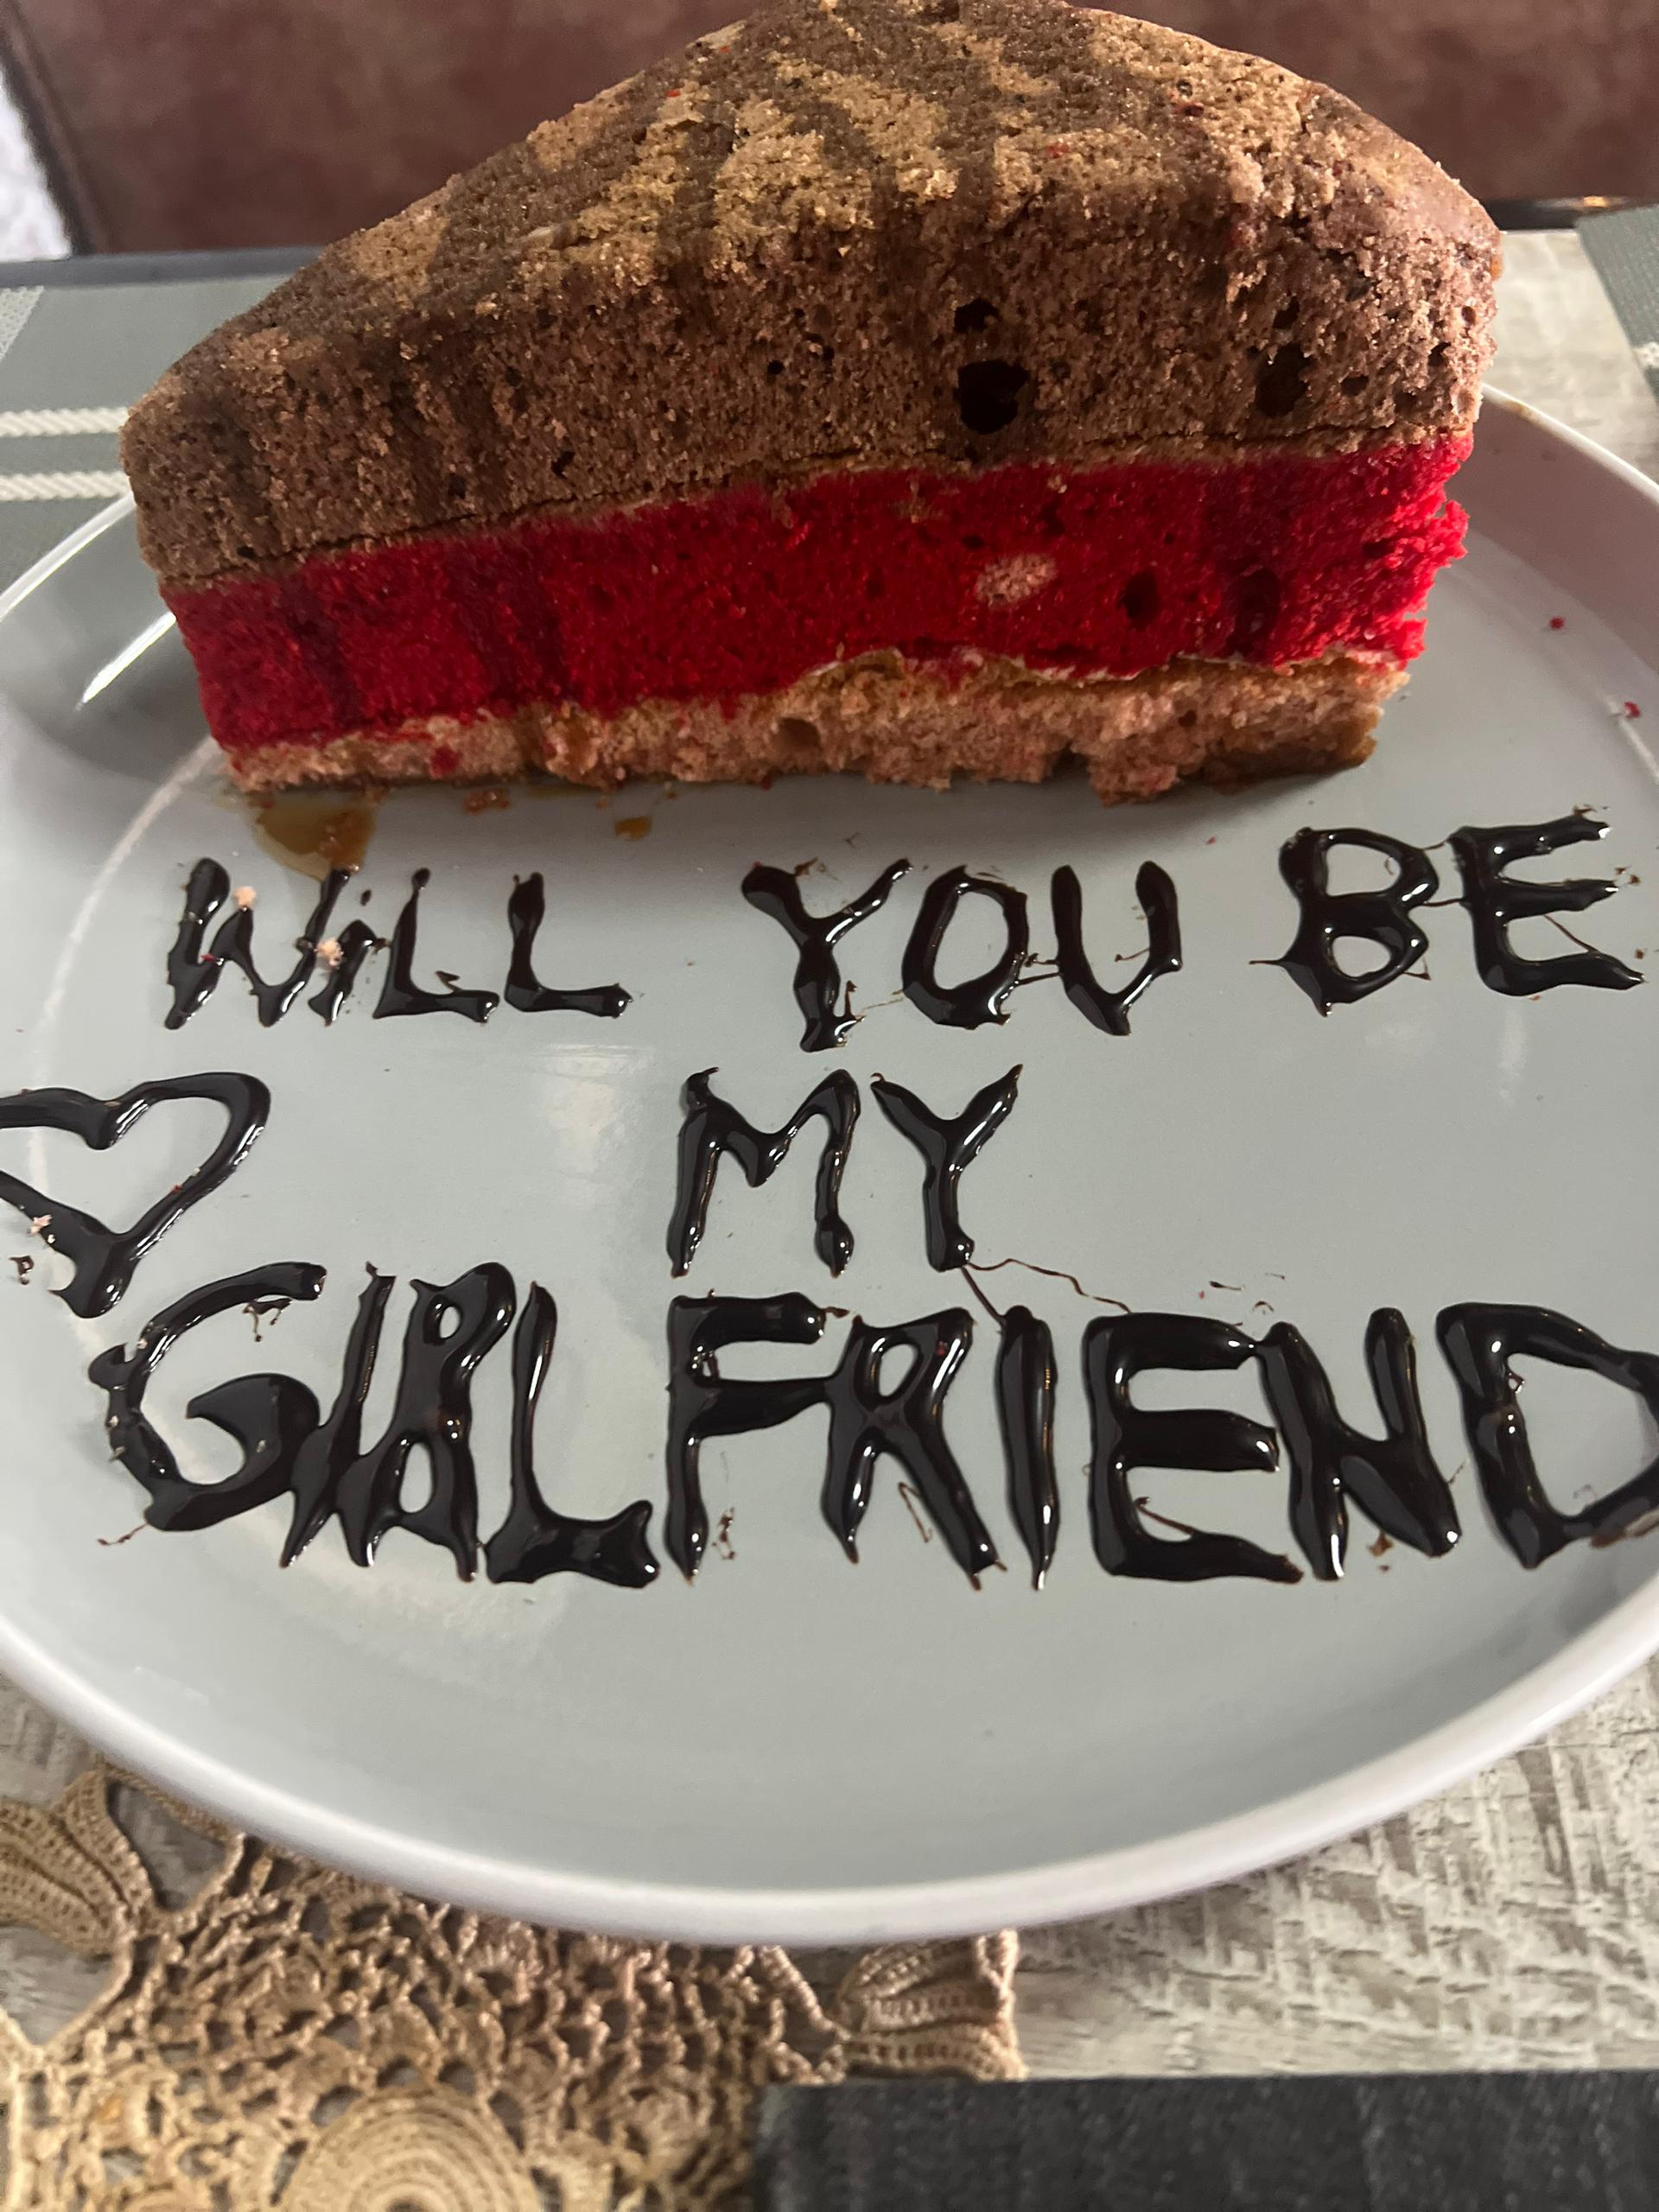 WiLL YOU BE
MY
GIRLFRIEND